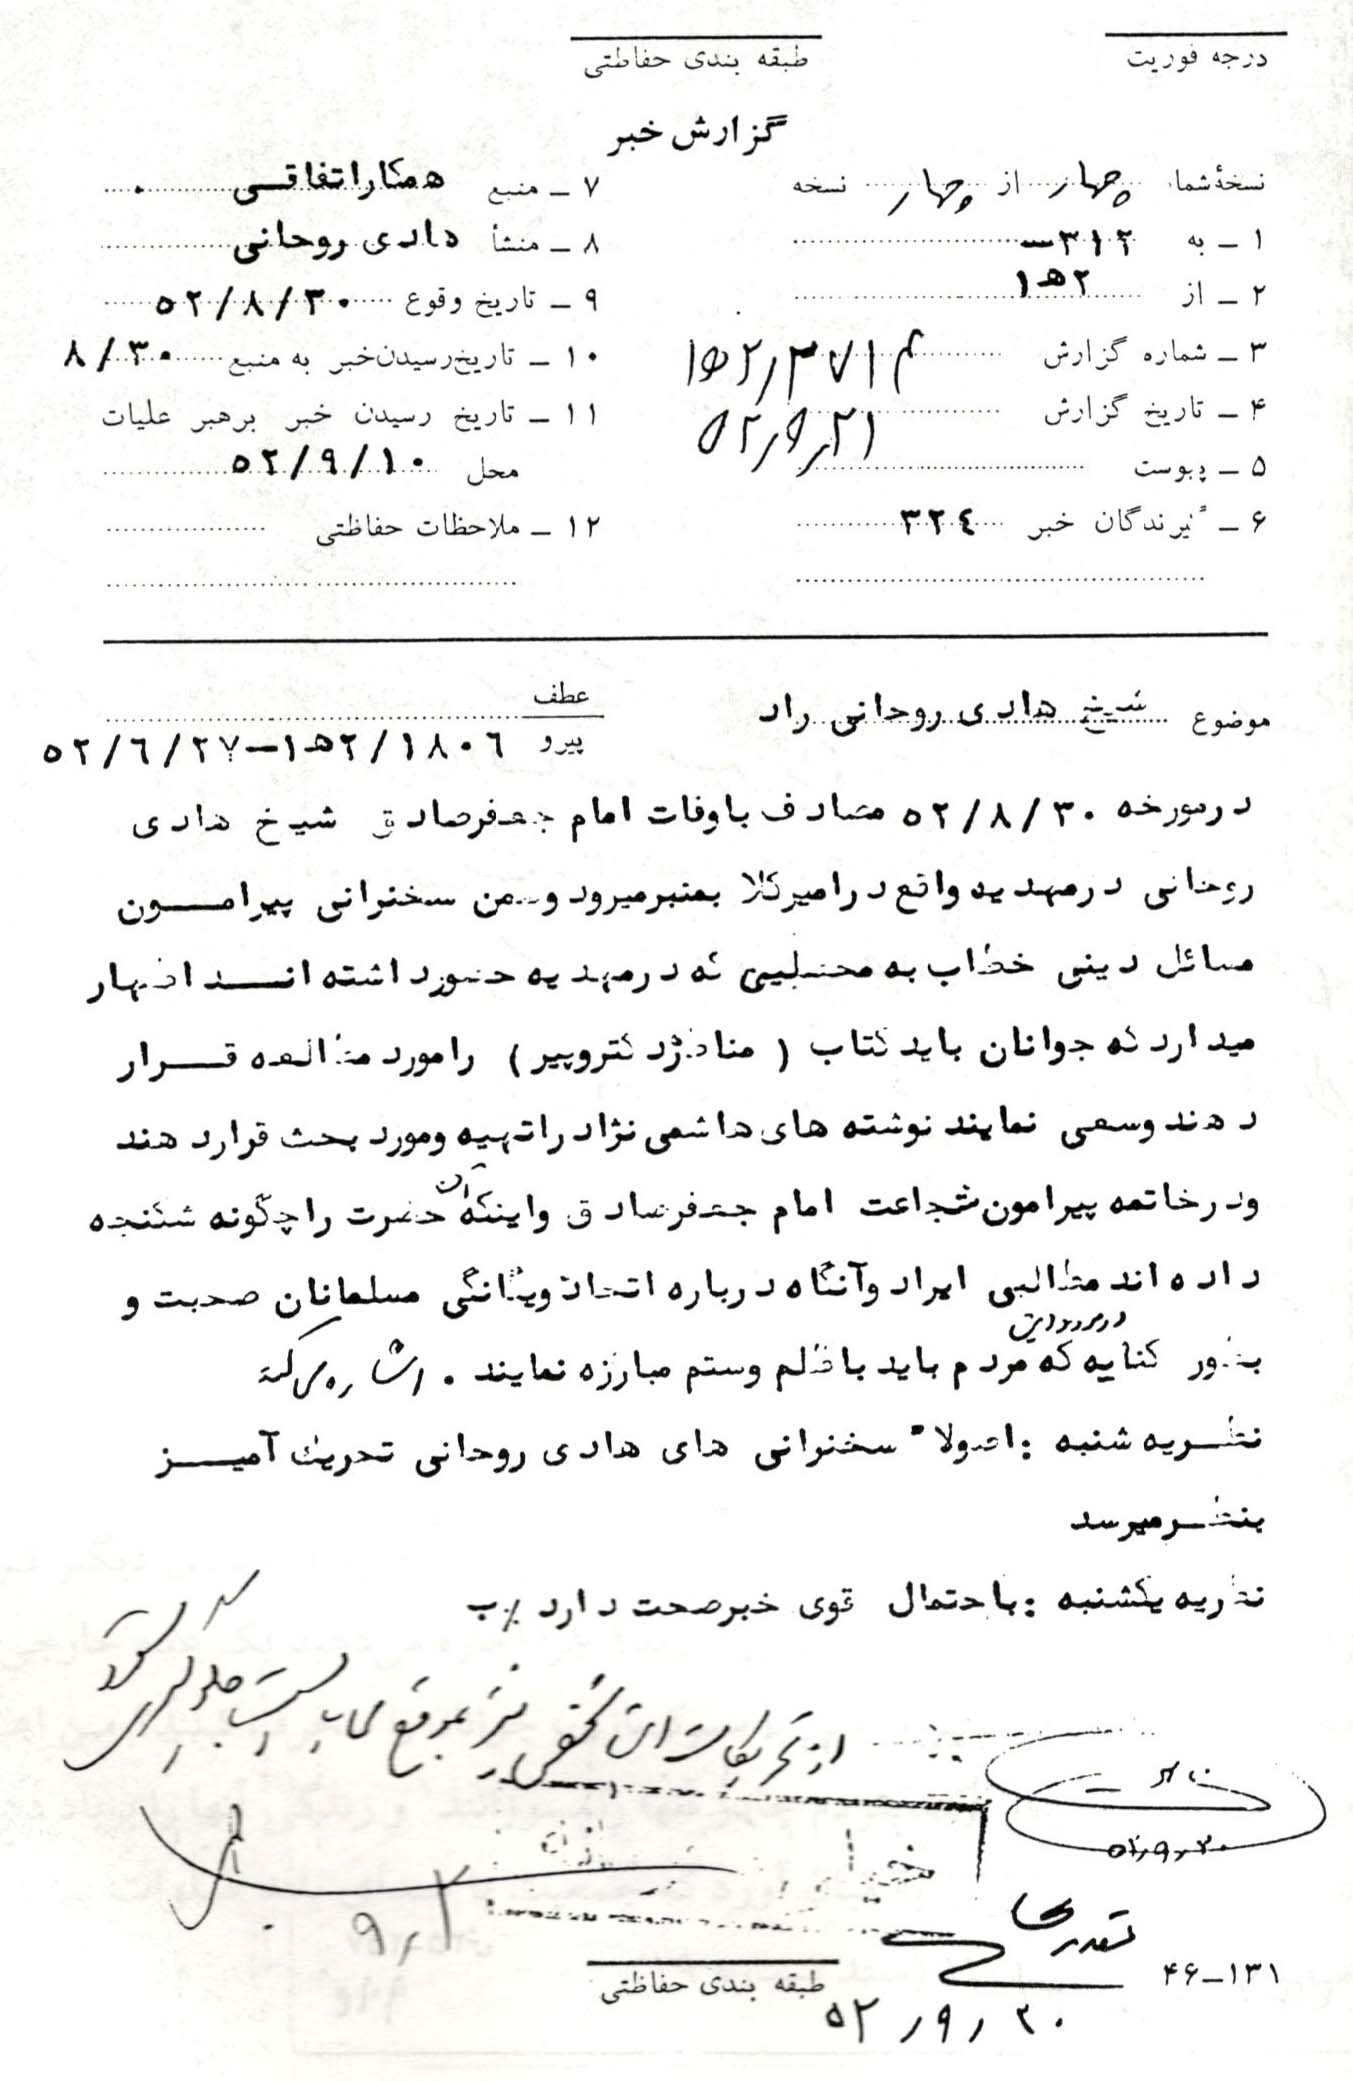 درجه فوریت
طبقه بندی حفاظتی
گزارش خبر
نسخهٔ شماره چهار از چهار نسخه
۱ ـ به ۳۱۲ـ
۲ ـ از ۲هـ۱
۳ ـ شماره گزارش
۴ ـ تاریخ گزارش ۵۲٫۹٫۲۱
۵ ـ پیوست
۶ ـ گیرندگان خبر ۳۲٤
۷ ـ منبع همکار اتفاقی
۸ ـ منشأ هادی روحانی
۹ ـ تاریخ وقوع ۵۲/۸/۳۰
۱۰ ـ تاریخ رسیدن خبر به منبع ۸/۳۰
۱۱ ـ تاریخ رسیدن خبر برهبر علیات
محل ۵۲/۹/۱۰
۱۲ ـ ملاحظات حفاظتی
موضوع شیخ هادی روحانی راد
عطف
پیرو ۱۸۰٦/۲هـ۱ـ۵۲/٦/۲۷
درمورخه ۵۲/۸/۳۰ مصادف باوفات امام جعفرصادق شیخ هادی
روحانی درمهدیه واقع درامیرکلا بمنبرمیرود وضمن سخنرانی پیرامون
مسائل دینی خطاب به محصلینی که درمهدیه حضورداشته اند اظهار
میدارد که جوانان باید کتاب ( مناظره دکتروپیر ) رامورد مطالعه قرار
دهند وسعی نمایند نوشته های هاشمی نژاد راتهیه ومورد بحث قراردهند
ودرخاتمه پیرامون شجاعت امام جعفرصادق واینکه آن حضرت راچگونه شکنجه
داده اند مطالبی ایراد وآنگاه درباره اتحاد ویگانگی مسلمانان صحبت و
بطور کنایه که مردم باید باظلم وستم مبارزه نمایند . اشاره میکند
نظریه شنبه : اصولاً سخنرانی های هادی روحانی تحریک آمیز
بنظرمیرسد
نظریه یکشنبه : باحتمال قوی خبرصحت دارد
از تحریکات این شخص نیز بموقع میبایست جلوگیری شود
۵۲٫۹٫۲۰
۹٫۲
۴۶ـ۱۳۱
طبقه بندی حفاظتی
۵۲٫۹٫۲۰